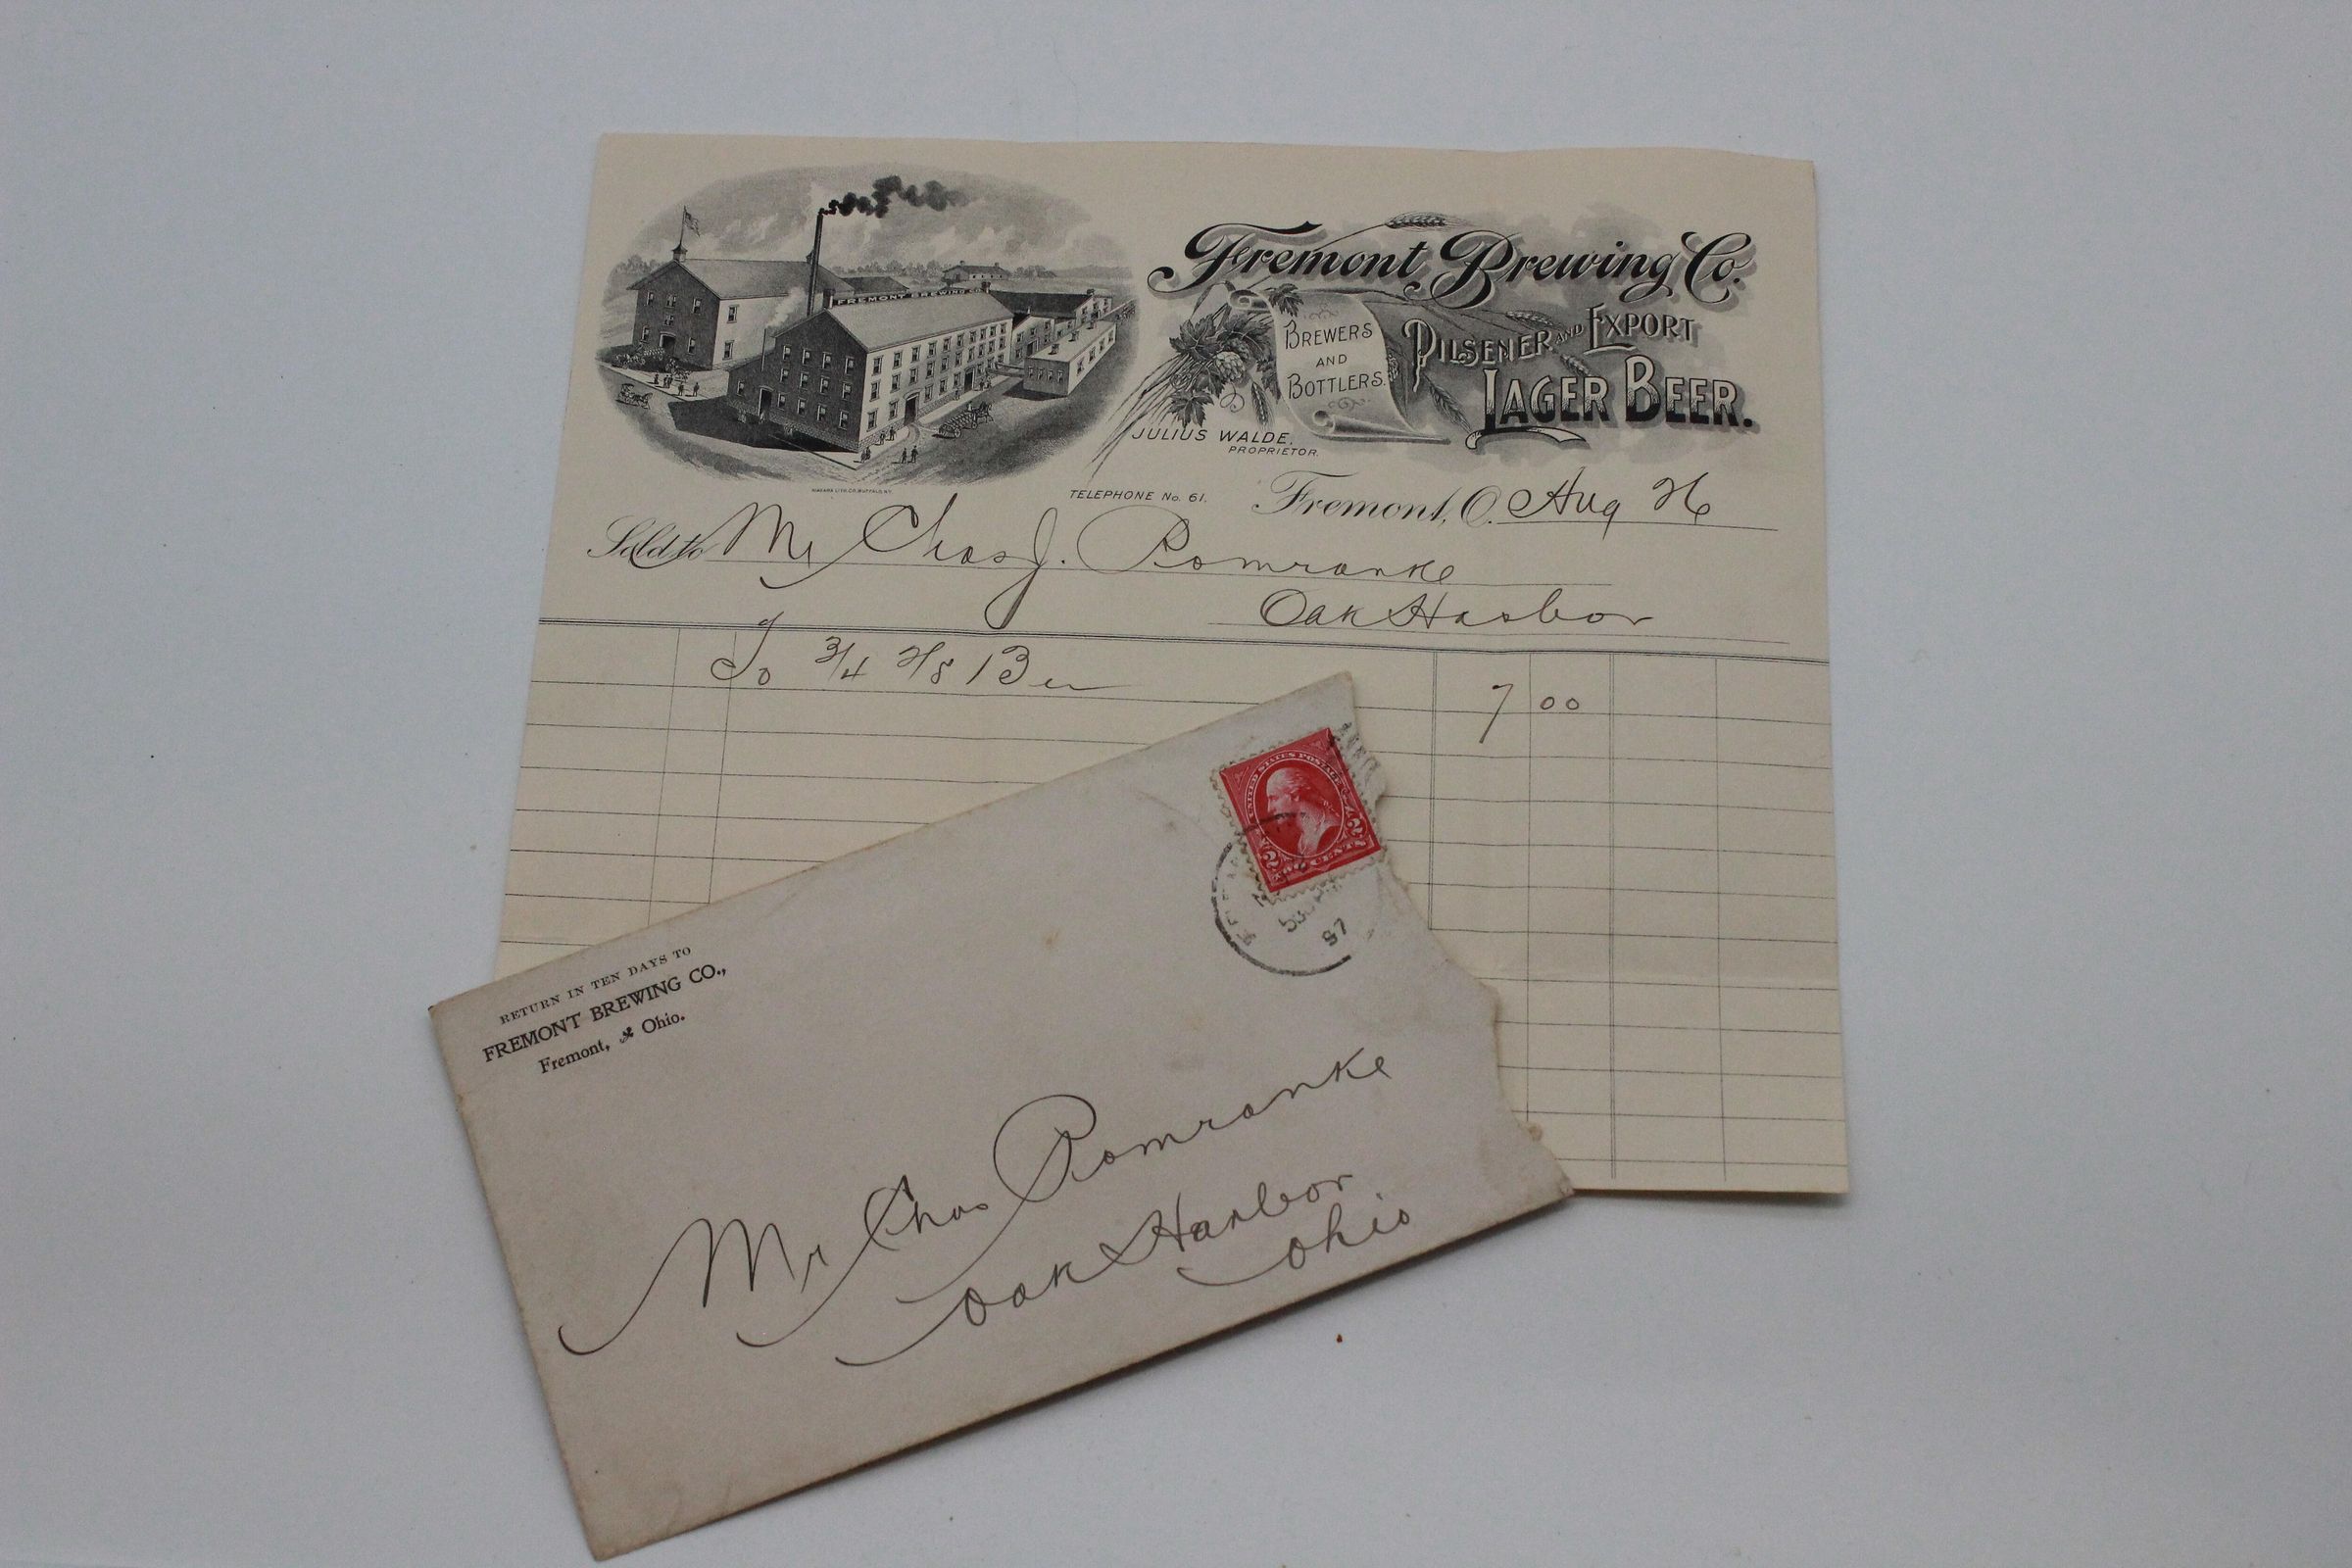 FREMONT BREWING CO.
Fremont Brewing Co.
BREWERS
AND
BOTTLERS.
PILSENER AND EXPORT
LAGER BEER.
JULIUS WALDE,
PROPRIETOR.
NIAGARA LITH. CO. BUFFALO, N.Y.
TELEPHONE No. 61.
Fremont, O. Aug 26
Sold to Mr Chas J. Romranke
Oak Harbor
To 3/4 2/8 Beer 7 00
UNITED STATES POSTAGE
2 2
TWO CENTS
530
97
RETURN IN TEN DAYS TO
FREMONT BREWING CO.,
Fremont, Ohio.
Mr Chas Romranke
Oak Harbor
Ohio